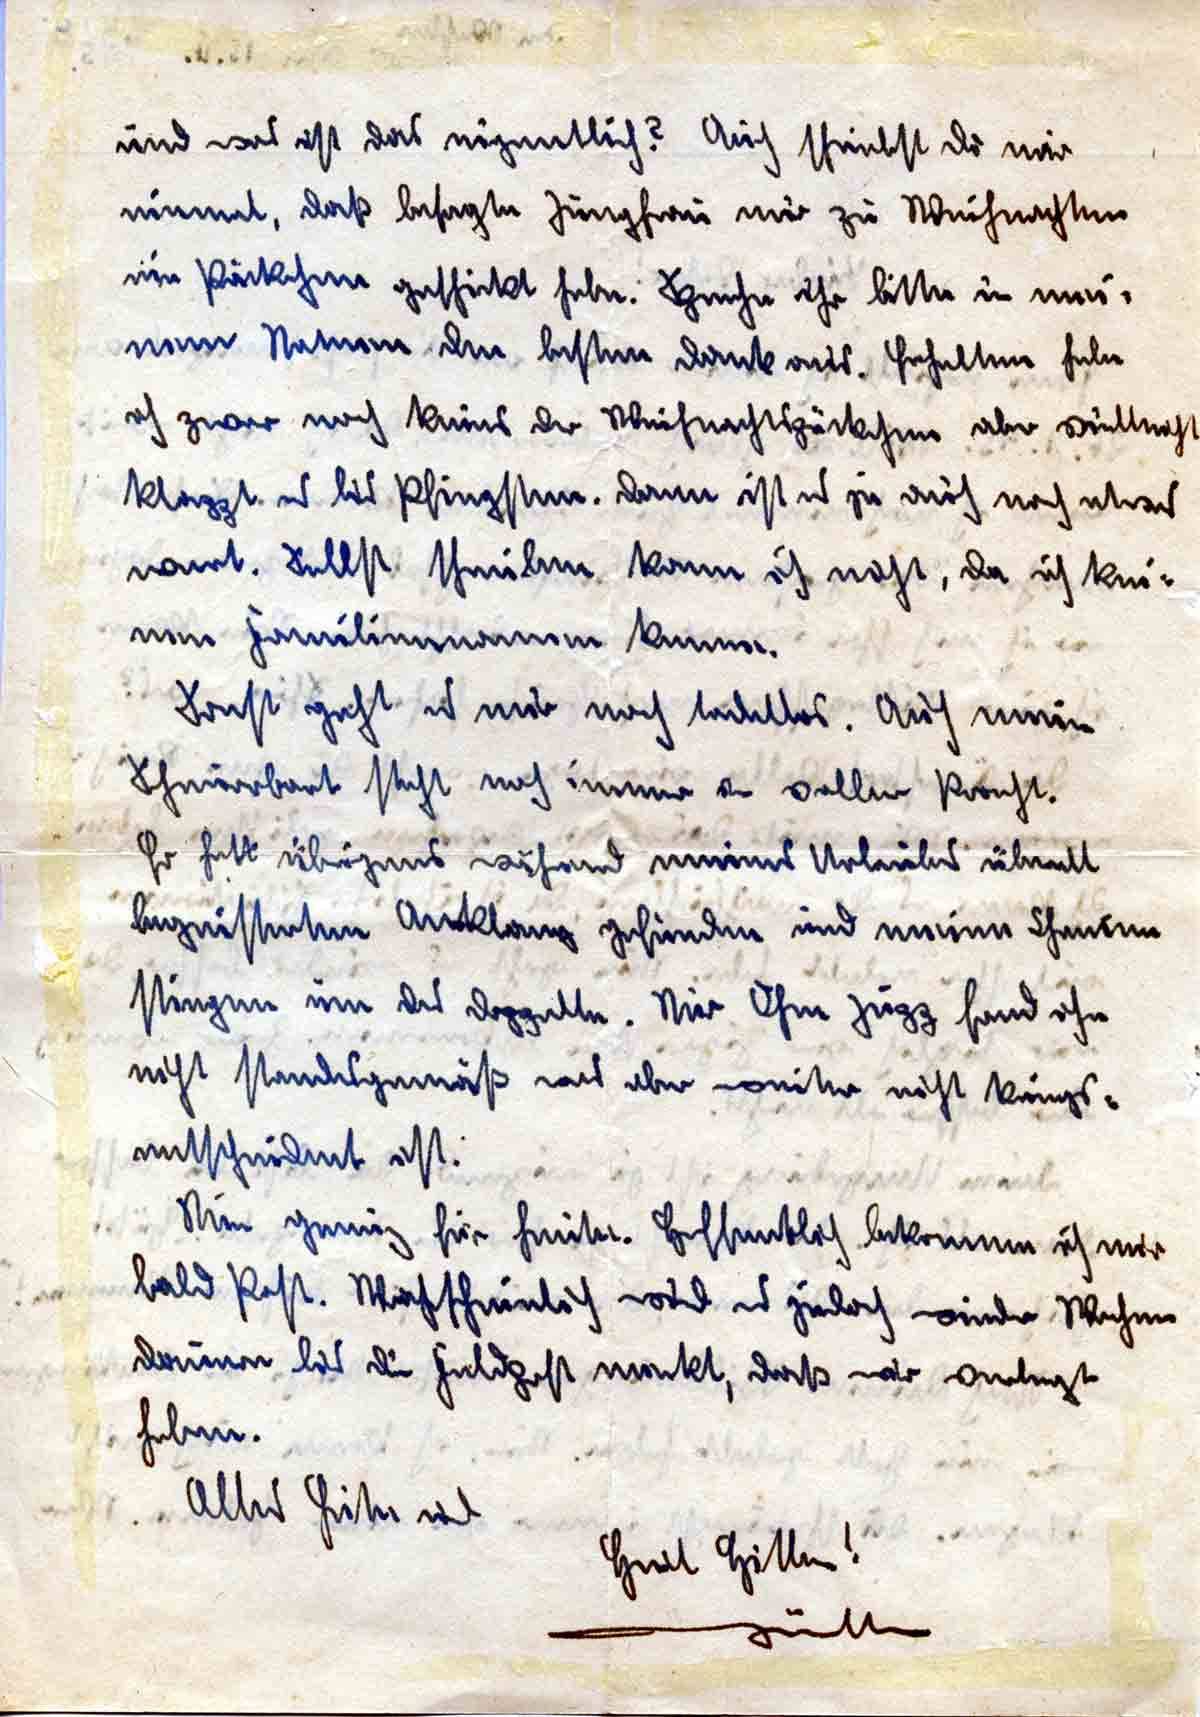 und was ist das eigentlich? Auch schriebst Du mir
einmal, daß besagte Jungfrau mir zu Weihnachten
ein Päckchen geschickt habe. Spreche ihr bitte in mei-
nem Namen den besten Dank aus. Erhalten habe
ich zwar noch keins der Weihnachtspäckchen aber vielleicht
klappt es bis Pfingsten. Dann ist es ja auch noch etwas
wert. Selbst schreiben kann ich nicht, da ich kei-
nen Familiennamen kenne.
Sonst geht es mir noch tadellos. Auch mein
Schnurrbart steht noch immer in voller Pracht.
Er hatte übrigens während meines Urlaubes überall
begeisterten Anklang gefunden und meine Chancen
stiegen um das doppelte. Nur Ohm Jupp fand ihn
nicht standesgemäß was aber weiter nicht kriegs-
entscheidend ist.
Nun genug für heute. Hoffentlich bekomme ich nur
bald Post. Wahrscheinlich wird es jedoch wieder Wochen
dauern bis die Feldpost merkt, daß wir verlegt
haben.
Alles Gute und
Heil Hitler!